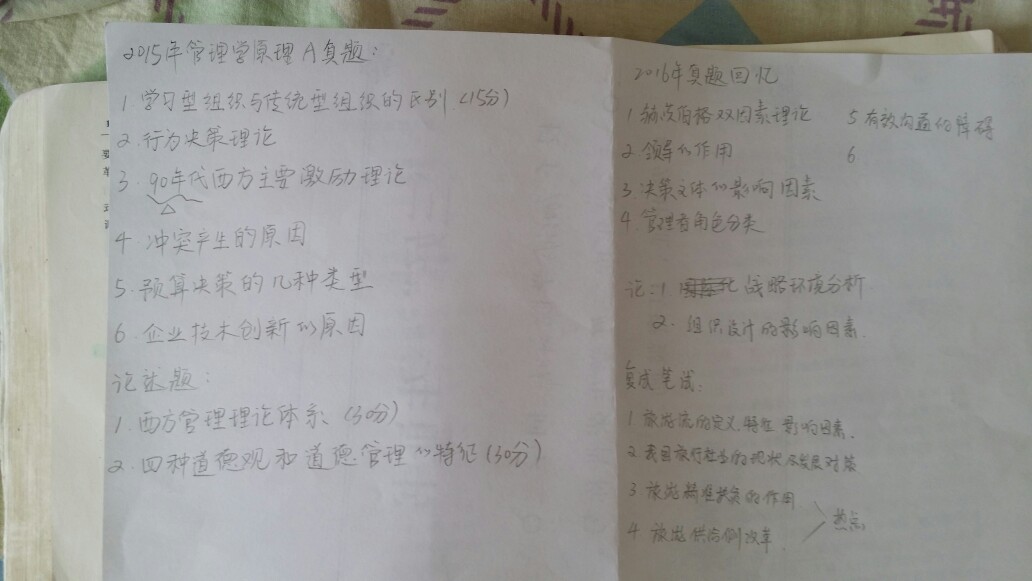 2015年管理学原理A真题:
1 学习型组织与传统型组织的区别 (15分)
2. 行为决策理论
3. 90年代西方主要激励理论
4 冲突产生的原因
5. 预算决策的几种类型
6 企业技术创新的原因
论述题:
1. 西方管理理论体系 (30分)
2. 四种道德观和道德管理的特征 (30分)
2016年真题回忆
1 赫茨伯格双因素理论
2. 领导的作用
3 决策文体的影响因素
4. 管理者角色分类
5 有效沟通的障碍
6
论:1 战略环境分析
2. 组织设计的影响因素.
复试笔试:
1 旅游流的定义.特征 影响因素.
2 我国旅行社业的现状及发展对策
3 旅游精准扶贫的作用
4 旅游供给侧改革.
热点